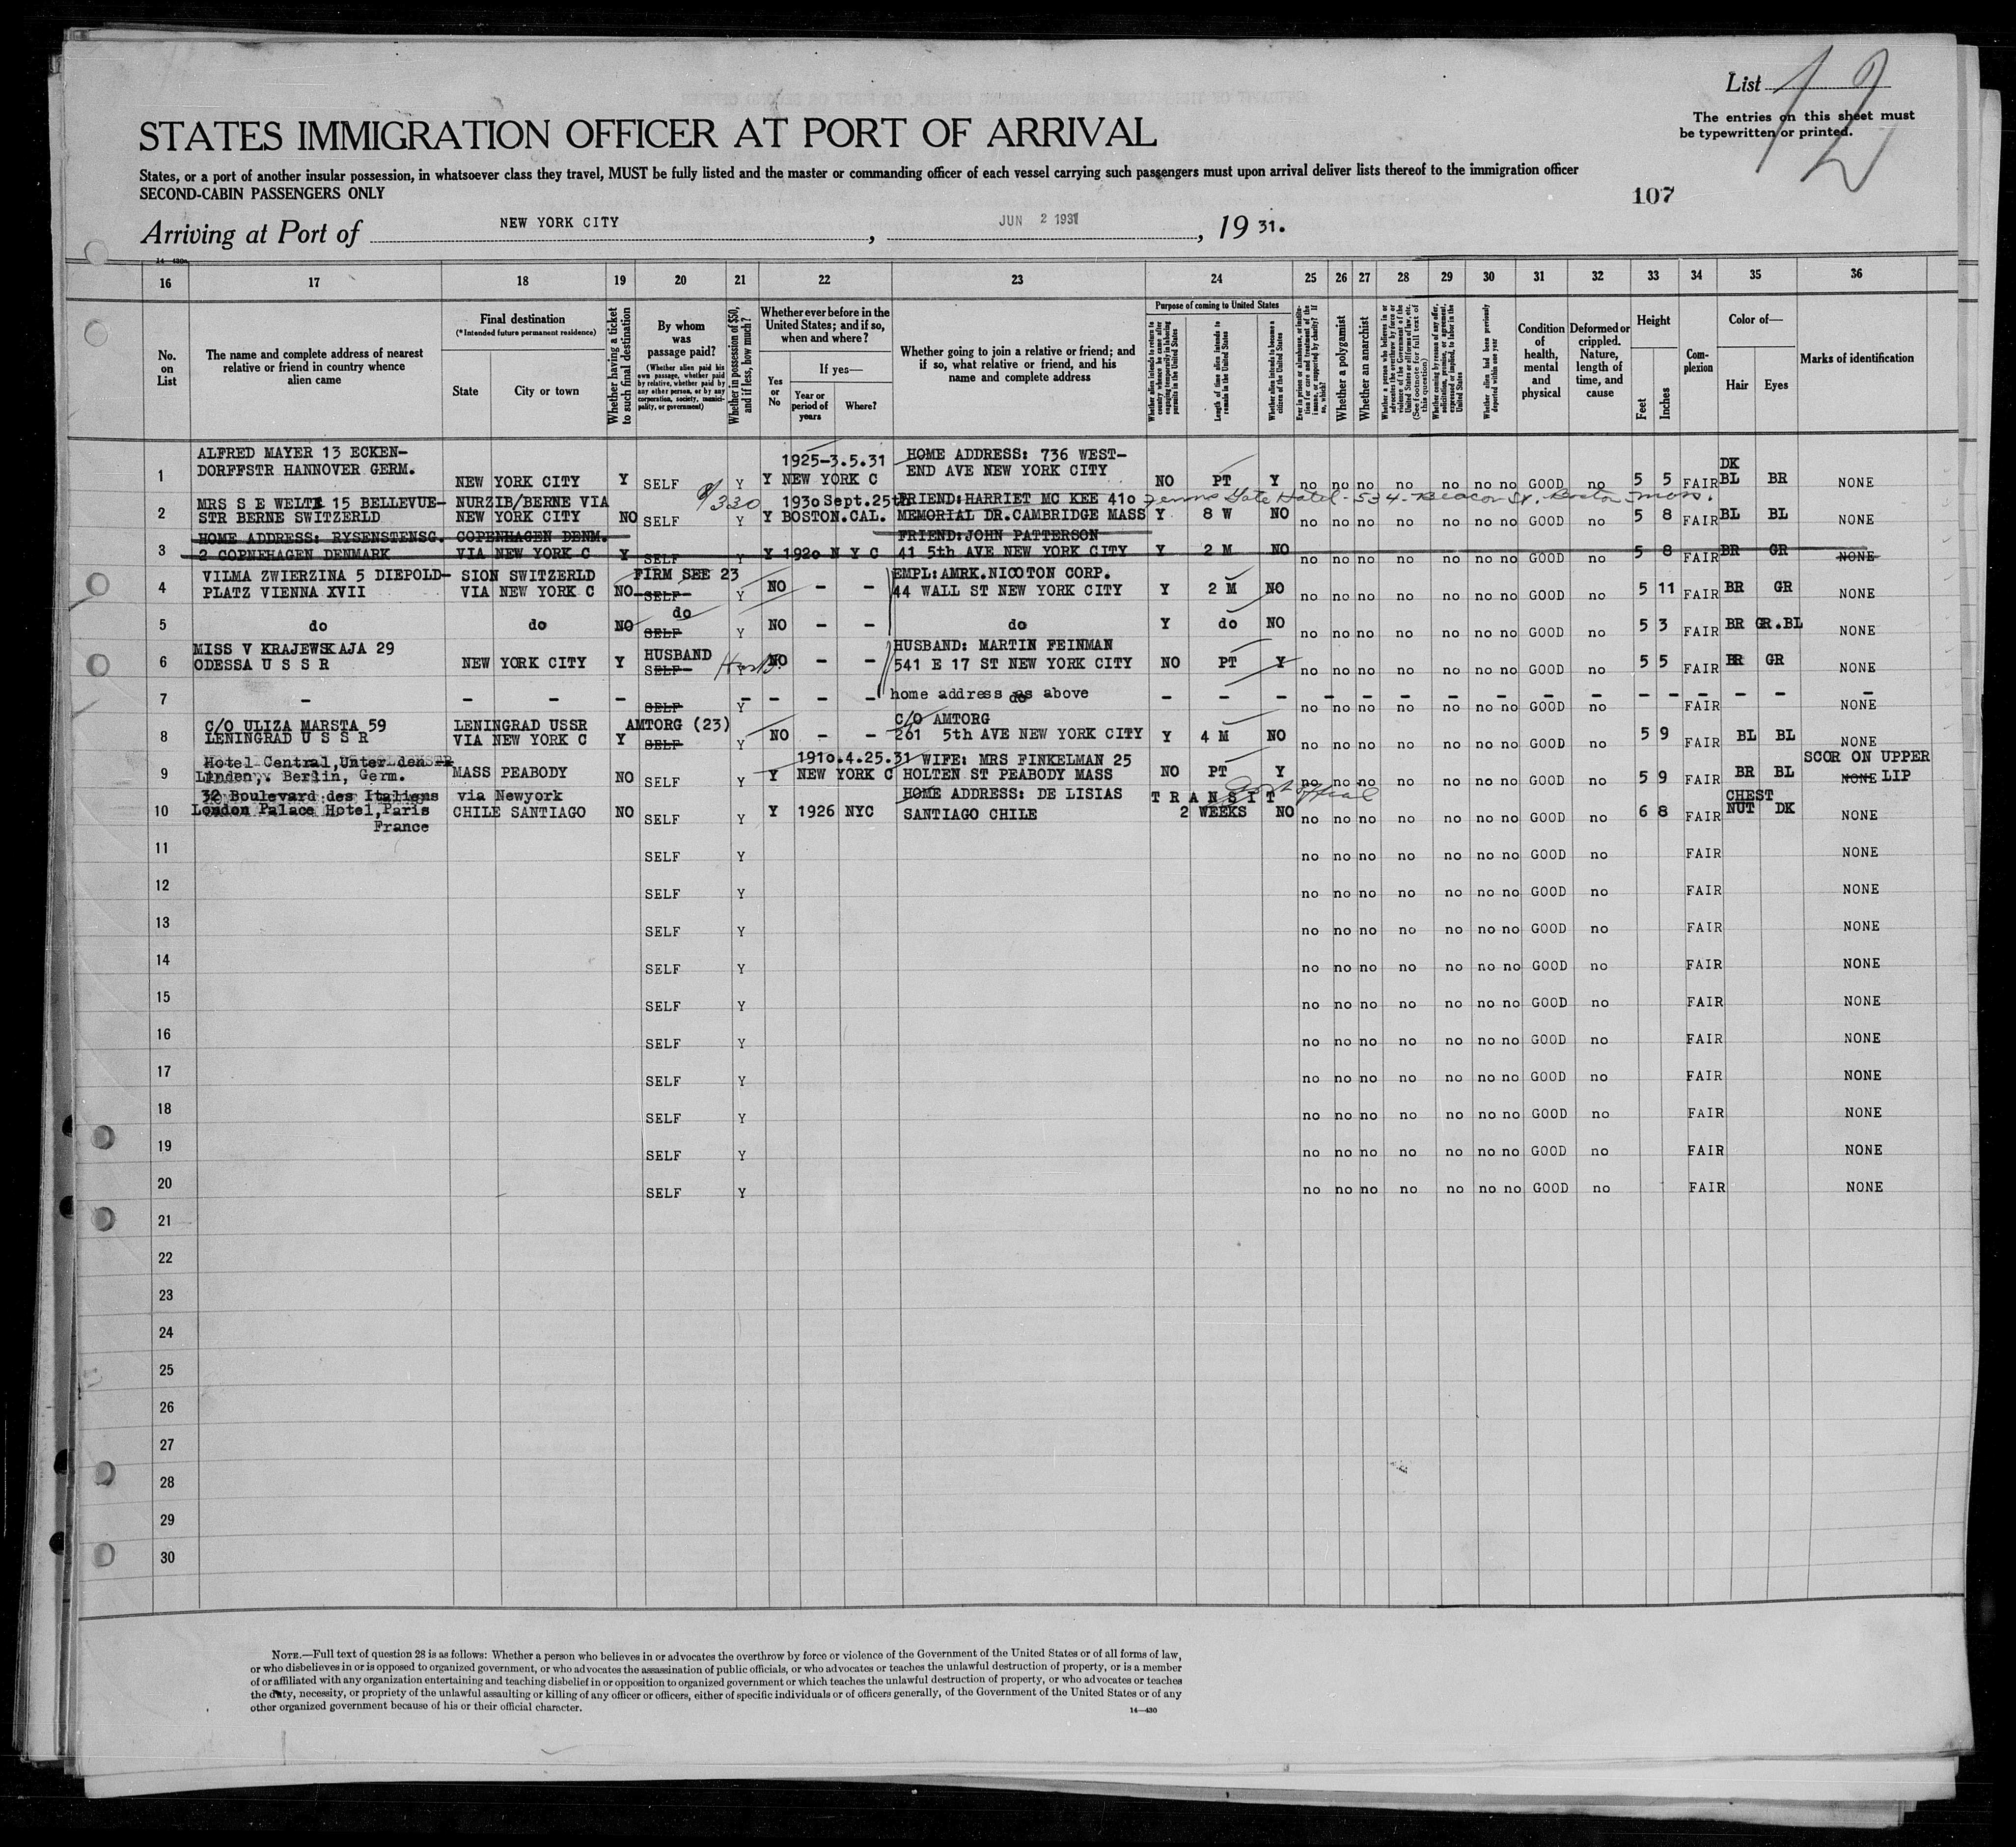 List 12
The entries on this sheet must
be typewritten or printed.
STATES IMMIGRATION OFFICER AT PORT OF ARRIVAL
States, or a port of another insular possession, in whatsoever class they travel, MUST be fully listed and the master or commanding officer of each vessel carrying such passengers must upon arrival deliver lists thereof to the immigration officer
SECOND-CABIN PASSENGERS ONLY
107
Arriving at Port of NEW YORK CITY, JUN 2 1931, 19 31.
16 17 18 19 20 21 22 23 24 25 26 27 28 29 30 31 32 33 34 35 36
No. on List
The name and complete address of nearest relative or friend in country whence alien came
Final destination
(*Intended future permanent residence)
State
City or town
Whether having a ticket to such final destination
By whom was passage paid?
(Whether alien paid his own passage, whether paid by relative, whether paid by any other person, or by any corporation, society, municipality, or government)
Whether in possession of $50, and if less, how much?
Whether ever before in the United States; and if so, when and where?
Yes or No
If yes—
Year or period of years
Where?
Whether going to join a relative or friend; and if so, what relative or friend, and his name and complete address
Purpose of coming to United States
Whether alien intends to return to country whence he came after engaging temporarily in laboring pursuits in the United States
Length of time alien intends to remain in the United States
Whether alien intends to become a citizen of the United States
Ever in prison or almshouse, or institution for care and treatment of the insane, or supported by charity? If so, which?
Whether a polygamist
Whether an anarchist
Whether a person who believes in or advocates the overthrow by force or violence of the Government of the United States or all forms of law, etc. (See footnote for full text of this question)
Whether coming by reason of any offer, solicitation, promise, or agreement, expressed or implied, to labor in the United States
Whether alien had been previously deported within one year
Condition of health, mental and physical
Deformed or crippled. Nature, length of time, and cause
Height
Feet
Inches
Complexion
Color of—
Hair
Eyes
Marks of identification
1 ALFRED MAYER 13 ECKEN-DORFFSTR HANNOVER GERM. NEW YORK CITY Y SELF Y Y 1925-3.5.31 NEW YORK C HOME ADDRESS: 736 WEST-END AVE NEW YORK CITY NO PT Y no no no no no no no GOOD no 5 5 FAIR DK BL BR NONE
2 MRS S E WELTI 15 BELLEVUE-STR BERNE SWITZERLD NURZIB/BERNE VIA NEW YORK CITY NO SELF Y Y 1930 Sept.25th BOSTON.CAL. FRIEND:HARRIET MC KEE 410 MEMORIAL DR.CAMBRIDGE MASS Hotel - 534 - Beacon St. Boston Mass. Y 8 W NO no no no no no no no GOOD no 5 8 FAIR BL BL NONE
3 HOME ADDRESS: RYSENSTENSG. 2 COPNEHAGEN DENMARK COPENHAGEN DENM. VIA NEW YORK C Y SELF Y Y 1920 N Y C FRIEND:JOHN PATTERSON 41 5th AVE NEW YORK CITY Y 2 M NO no no no no no no no GOOD no 5 8 FAIR BR GR NONE
4 VILMA ZWIERZINA 5 DIEPOLD-PLATZ VIENNA XVII SION SWITZERLD VIA NEW YORK C NO FIRM SEE 23 SELF Y NO - - EMPL:AMRK.NICOTON CORP. 44 WALL ST NEW YORK CITY Y 2 M NO no no no no no no no GOOD no 5 11 FAIR BR GR NONE
5 do do NO do SELF Y NO - - do Y do NO no no no no no no no GOOD no 5 3 FAIR BR GR.BL NONE
6 MISS V KRAJEWSKAJA 29 ODESSA U S S R NEW YORK CITY Y HUSBAND SELF Y NO - - HUSBAND: MARTIN FEINMAN 541 E 17 ST NEW YORK CITY NO PT Y no no no no no no no GOOD no 5 5 FAIR BR GR NONE
7 - - - - SELF - Y - - - home address as above do - - - - - - - - - - no no no no no no no GOOD no FAIR - - NONE
8 C/O ULIZA MARSTA 59 LENINGRAD U S S R LENINGRAD USSR VIA NEW YORK C Y AMTORG (23) SELF Y NO - - C/O AMTORG 261 5th AVE NEW YORK CITY Y 4 M NO no no no no no no no GOOD no 5 9 FAIR BL BL NONE
9 Hotel Central,Unter den Linden,. Berlin, Germ. MASS PEABODY NO SELF Y Y 1910.4.25.31 NEW YORK C WIFE: MRS FINKELMAN 25 HOLTEN ST PEABODY MASS NO PT Y no no no no no no no GOOD no 5 9 FAIR BR BL SCOR ON UPPER NONE LIP
10 32 Boulevard des Italiens London Palace Hotel,Paris France via Newyork CHILE SANTIAGO NO SELF Y Y 1926 NYC HOME ADDRESS: DE LISIAS SANTIAGO CHILE TRANSIT 2 WEEKS NO no no no no no no no GOOD no 6 8 FAIR CHEST NUT DK NONE
11 SELF Y no no no no no no no GOOD no FAIR NONE
12 SELF Y no no no no no no no GOOD no FAIR NONE
13 SELF Y no no no no no no no GOOD no FAIR NONE
14 SELF Y no no no no no no no GOOD no FAIR NONE
15 SELF Y no no no no no no no GOOD no FAIR NONE
16 SELF Y no no no no no no no GOOD no FAIR NONE
17 SELF Y no no no no no no no GOOD no FAIR NONE
18 SELF Y no no no no no no no GOOD no FAIR NONE
19 SELF Y no no no no no no no GOOD no FAIR NONE
20 SELF Y no no no no no no no GOOD no FAIR NONE
21
22
23
24
25
26
27
28
29
30
NOTE.—Full text of question 28 is as follows: Whether a person who believes in or advocates the overthrow by force or violence of the Government of the United States or of all forms of law,
or who disbelieves in or is opposed to organized government, or who advocates the assassination of public officials, or who advocates or teaches the unlawful destruction of property, or is a member
of or affiliated with any organization entertaining and teaching disbelief in or opposition to organized government or which teaches the unlawful destruction of property, or who advocates or teaches
the duty, necessity, or propriety of the unlawful assaulting or killing of any officer or officers, either of specific individuals or of officers generally, of the Government of the United States or of any
other organized government because of his or their official character.
14—430